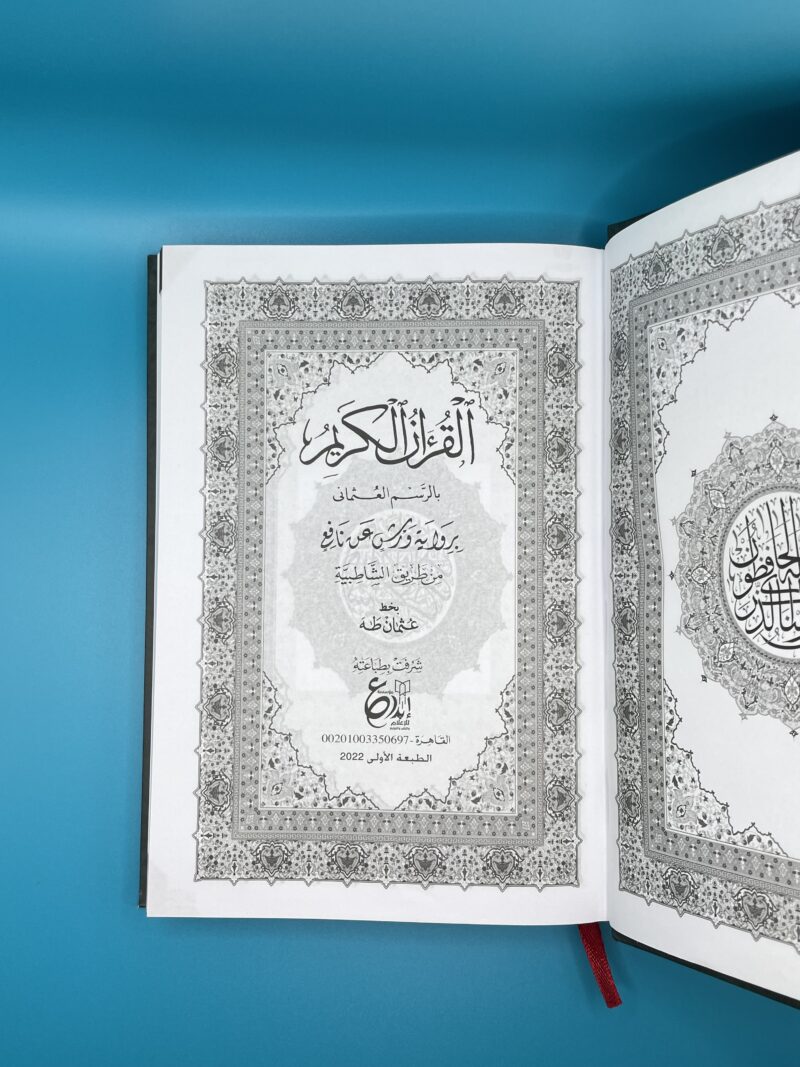 ٱلْقُرْءَانُ ٱلْكَرِيمُ
بالرَّسْمِ العُثمانى
بِرِوَايَةِ وَرْشٍ عَن نَافِعٍ
مِن طَرِيقِ الشَّاطِبِيَّة
بخط
عُثمَان طٰه
شَرُفَتْ بِطِبَاعَتِهِ
إبداع
للإعلام
القاهرة-00201003350697
الطبعة الأولى 2022